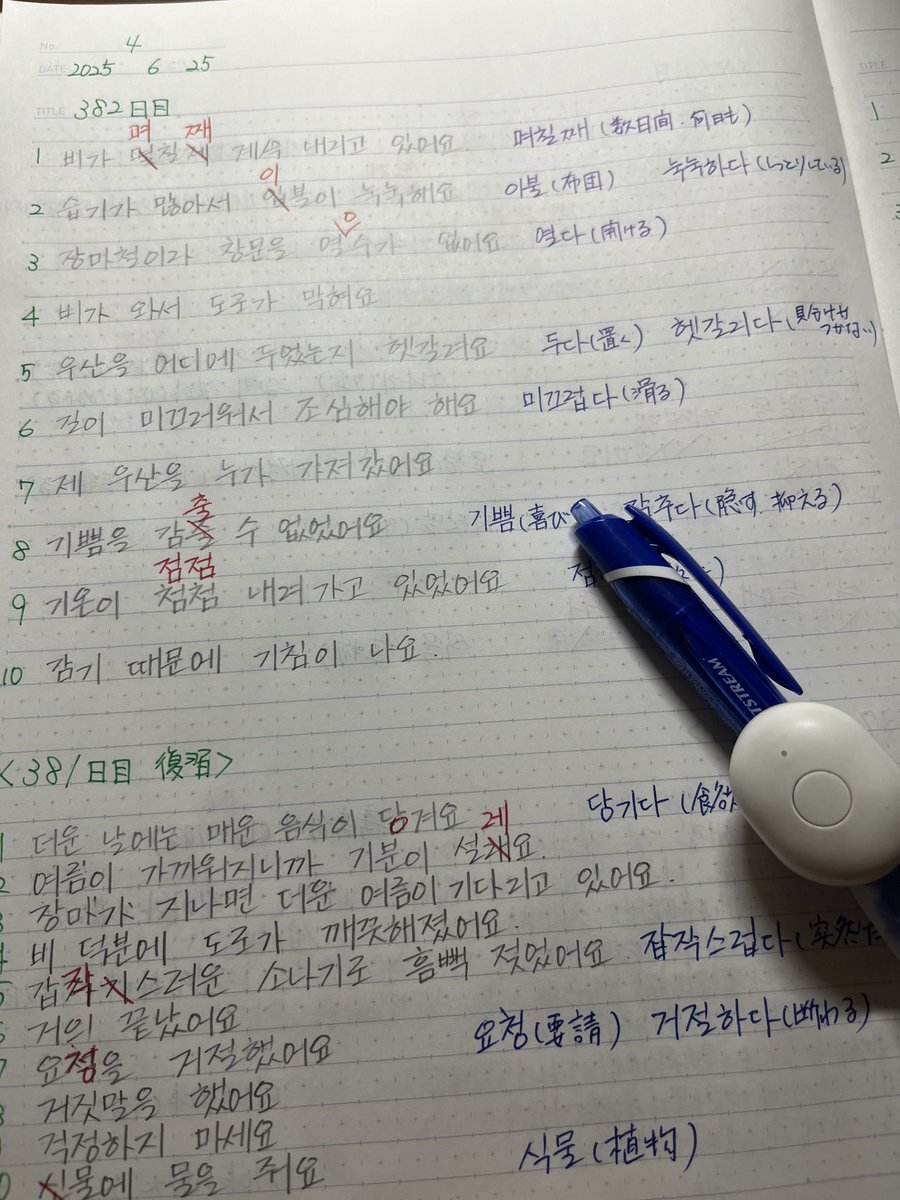 No. 4
DATE 2025 6 25
TITLE 382日目
TITLE
며 째
1 비가 며칠 계속 내리고 있어요 며칠째(数日間・何日も)
이
2 습기가 많아서 불이 눅눅해요 이불(布団) 눅눅하다(しっとりしている)
으
3 장마철이라 창문을 열 수가 없어요 열다(開ける)
4 비가 와서 도로가 막혀요
5 우산을 어디에 두었는지 헷갈려요 두다(置く) 헷갈리다(見分けがつかない)
6 길이 미끄러워서 조심해야 해요 미끄럽다(滑る)
7 제 우산을 누가 가져갔어요
출
8 기쁨을 감 수 없었어요 기쁨(喜び 감추다(隠す、抑える)
점점
9 기온이 첨첨 내려가고 있었어요 점
10 감기 때문에 기침이 나요.
<381日目 復習>
1 더운 날에는 매운 음식이 당겨요 당기다(食欲
레
2 여름이 가까워지니까 기분이 설요.
3 장마가 지나면 더운 여름이 기다리고 있어요.
4 비 덕분에 도로가 깨끗해졌어요.
5 갑작스러운 소나기로 흠뻑 젖었어요. 갑작스럽다(突然だ
6 거의 끝났어요
7 요청을 거절했어요 요청(要請) 거절하다(断わる)
8 거짓말을 했어요
9 걱정하지 마세요
0 식물에 물을 줘요 식물(植物)
JETSTREAM
1
2
3